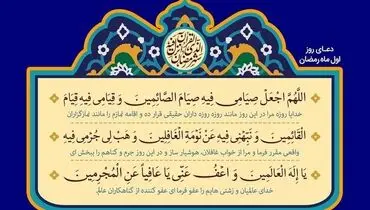 دعـای روز
اول ماه رمضان
اللَّهُمَّ اجْعَلْ صِيَامِي فِيهِ صِيَامَ الصَّائِمِينَ وَ قِيَامِي فِيهِ قِيَامَ
خدایا روزه مرا در این روز مانند روزه روزه داران حقیقی قرار ده و اقامه نمازم را مانند نمازگزاران
الْقَائِمِينَ وَ نَبِّهْنِي فِيهِ عَنْ نَوْمَةِ الْغَافِلِينَ وَ هَبْ لِي جُرْمِي فِيهِ
واقعی مقرر فرما و مرا از خواب غافلان، هوشیار ساز و در این روز جرم و گناهم را ببخش ای
يَا إِلَهَ الْعَالَمِينَ وَ اعْفُ عَنِّي يَا عَافِياً عَنِ الْمُجْرِمِينَ
خدای عالمیان و زشتی هایم را عفو فرما ای عفو کننده از گناهکاران عالم